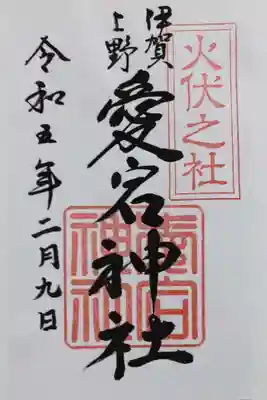 火伏之社
伊賀
上野
愛宕神社
令和五年二月九日
愛宕
神社